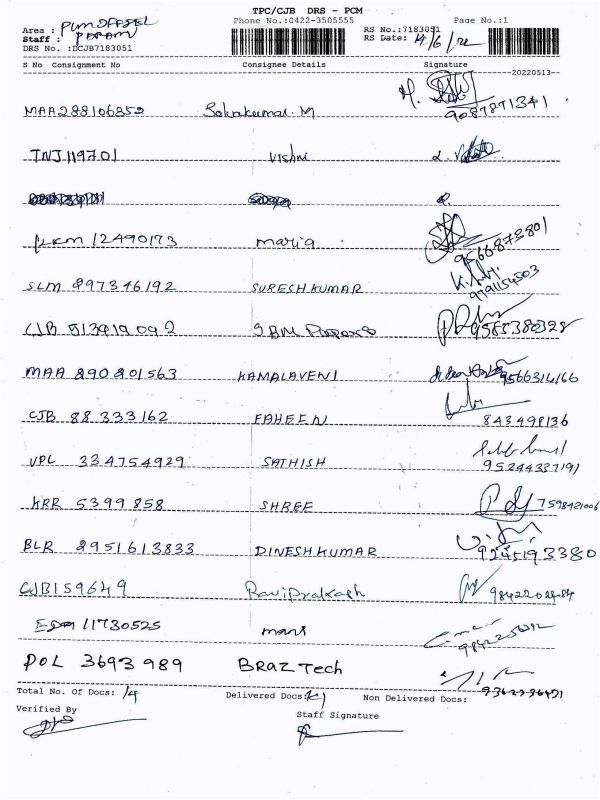 TPC/CJB DRS - PCM
Phone No.:0422-3505555 Page No.:1
Area :
Staff :
DRS No. :DCJB7183051
RS No.:7183051
RS Date: 4/6/22
S No Consignment No Consignee Details Signature
20220513
MAA288106352 M 9087871341
TNJ119701 Vishnu
PCM 12490173 Maria 9566873801
SLM 897346192 SURESHKUMAR 9791154503
CJB 513919092 SBM 9585380328
MAA 890201563 KAMALAVENI 9566314166
CJB 88333162 FAHEEN 843498136
VPL 334754929 SATHISH
KRR 5399858 SHREE 7598421006
BLR 2951613833 DINESHKUMAR 9245193380
CJB159649 Raviprakash
11730525 mani
POL 3693989 BRAZ Tech
Total No. Of Docs: 14 Delivered Docs: Non Delivered Docs:
Verified By
Staff Signature